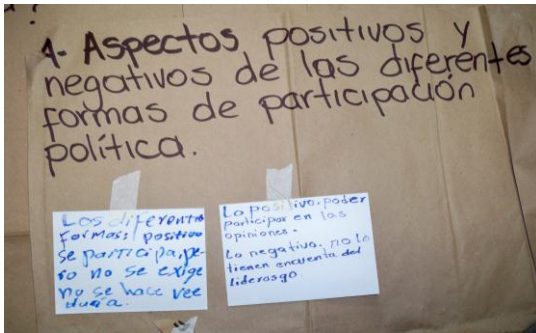 1- Aspectos positivos y
negativos de las diferentes
formas de participación
política.
Los diferentes
formas: positivo
se participa, pe-
ro no se exige
no se hace vee
duria.
Lo positivo. poder
participar en las
opiniones.
Lo negativo. no lo
tienen encuenta del
liderosgo.